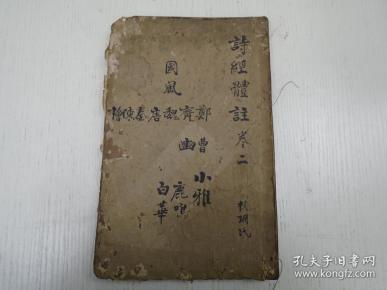 詩經體註 卷二
國風
鄭齊魏唐秦陳檜
曹豳
小雅
鹿鳴
白華
孔夫子旧书网